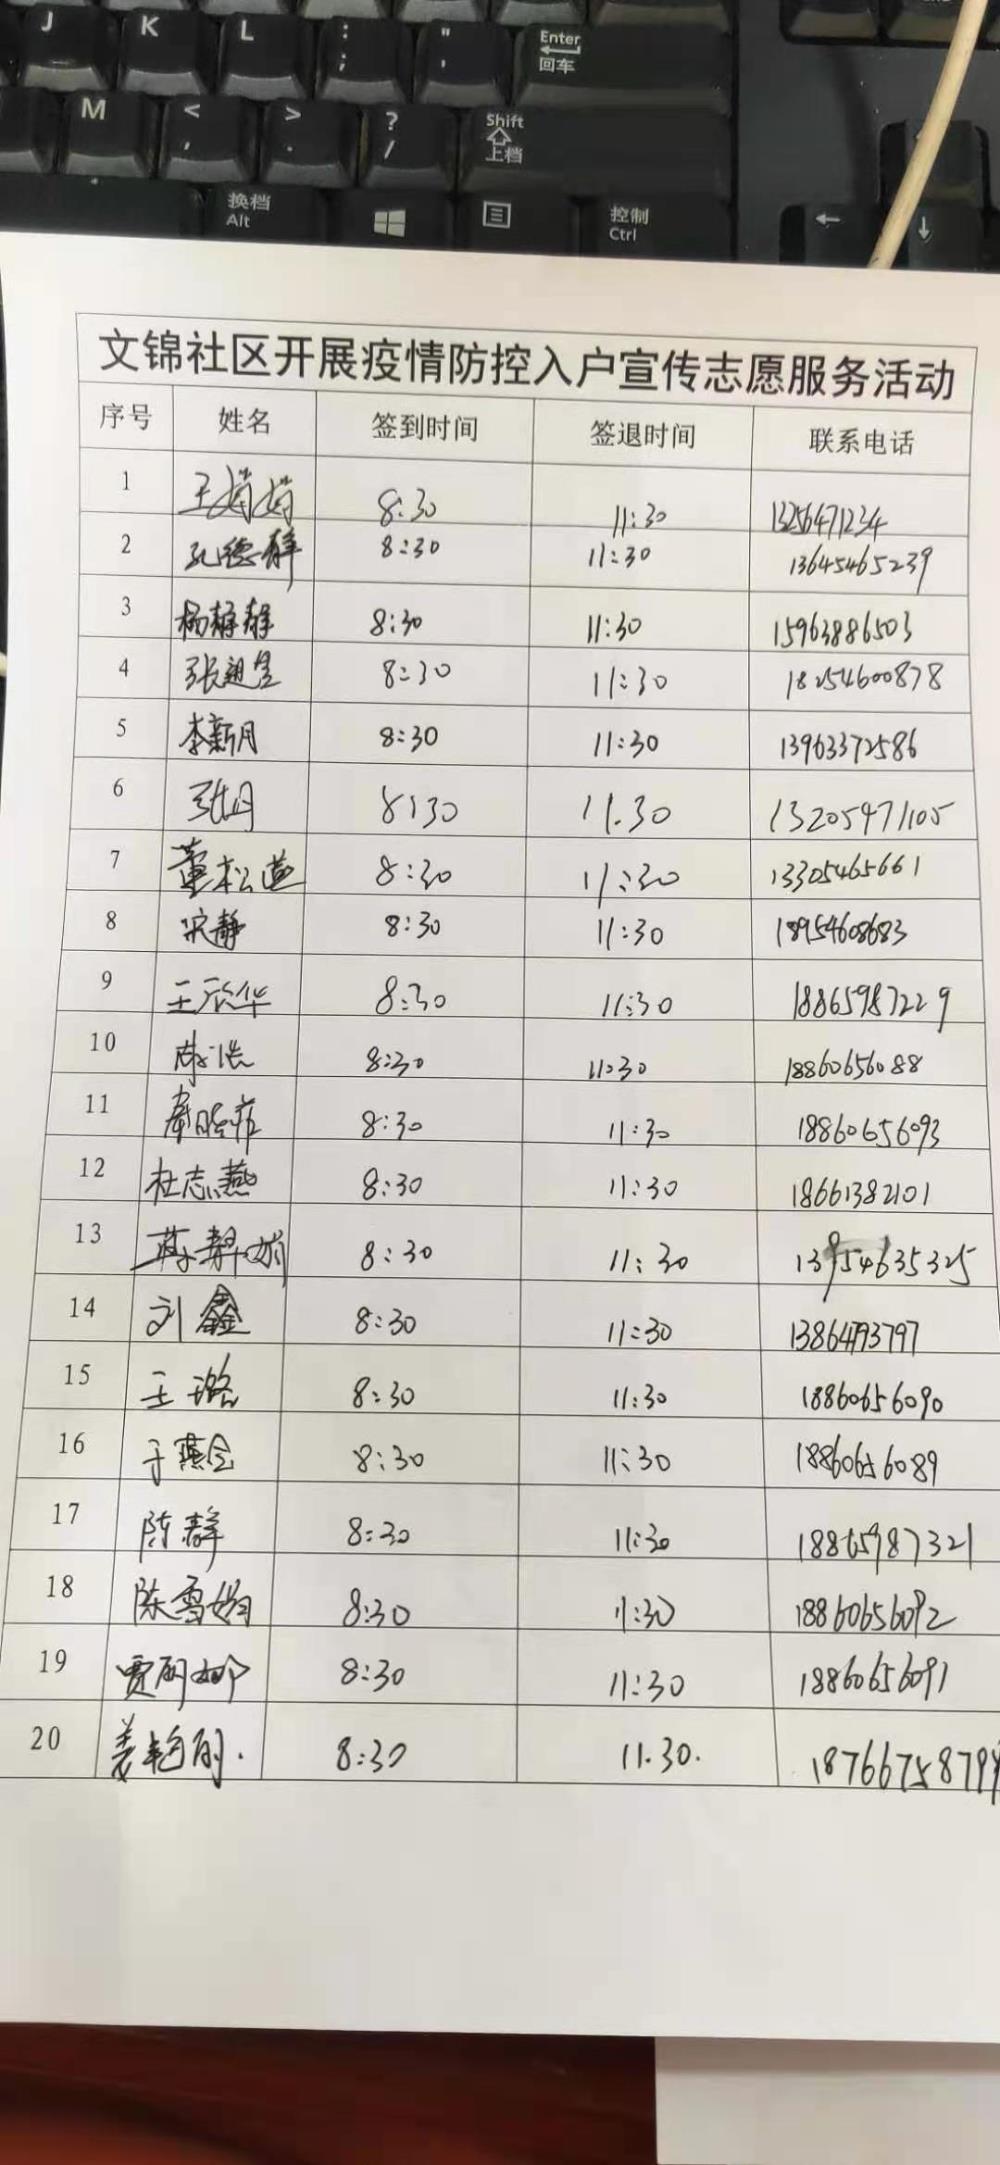 J K L : ; " ' Enter 回车
M < , > . ? / Shift 上档
换档 Alt 控制 Ctrl
文锦社区开展疫情防控入户宣传志愿服务活动
序号 姓名 签到时间 签退时间 联系电话
1 王娟娟 8:30 11:30 13256471234
2 孔德静 8:30 11:30 13645465239
3 杨静静 8:30 11:30 15963886503
4 8:30 11:30 18254600878
5 李新月 8:30 11:30 13963372586
6 张丹 8:30 11.30 13205471105
7 董松莲 8:30 11:30 13305465661
8 宋静 8:30 11:30 18954608683
9 王欣华 8:30 11:30 18865987229
10 8:30 11:30 18860656088
11 秦晓菲 8:30 11:30 18860656093
12 杜志燕 8:30 11:30 18661382101
13 8:30 11:30 13954635325
14 刘鑫 8:30 11:30 13864793797
15 王璐 8:30 11:30 18860656090
16 于燕会 8:30 11:30 18860656089
17 陈静 8:30 11:30 18865987321
18 陈雪娟 8:30 11:30 18860656092
19 贾丽娜 8:30 11:30 18860656091
20 姜艳丽. 8:30 11.30.